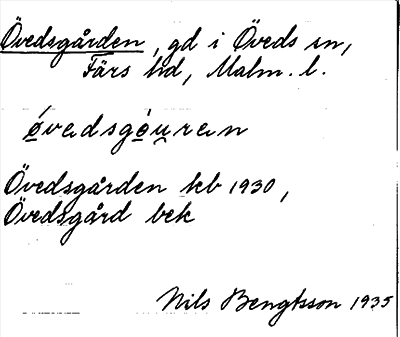 Övedsgården, gd i Öveds sn,
Färs hd, Malm. l.
ǿvedsgǿu̯ren
Övedsgården kb 1930,
Övedsgård bek
Nils Bengtsson 1935